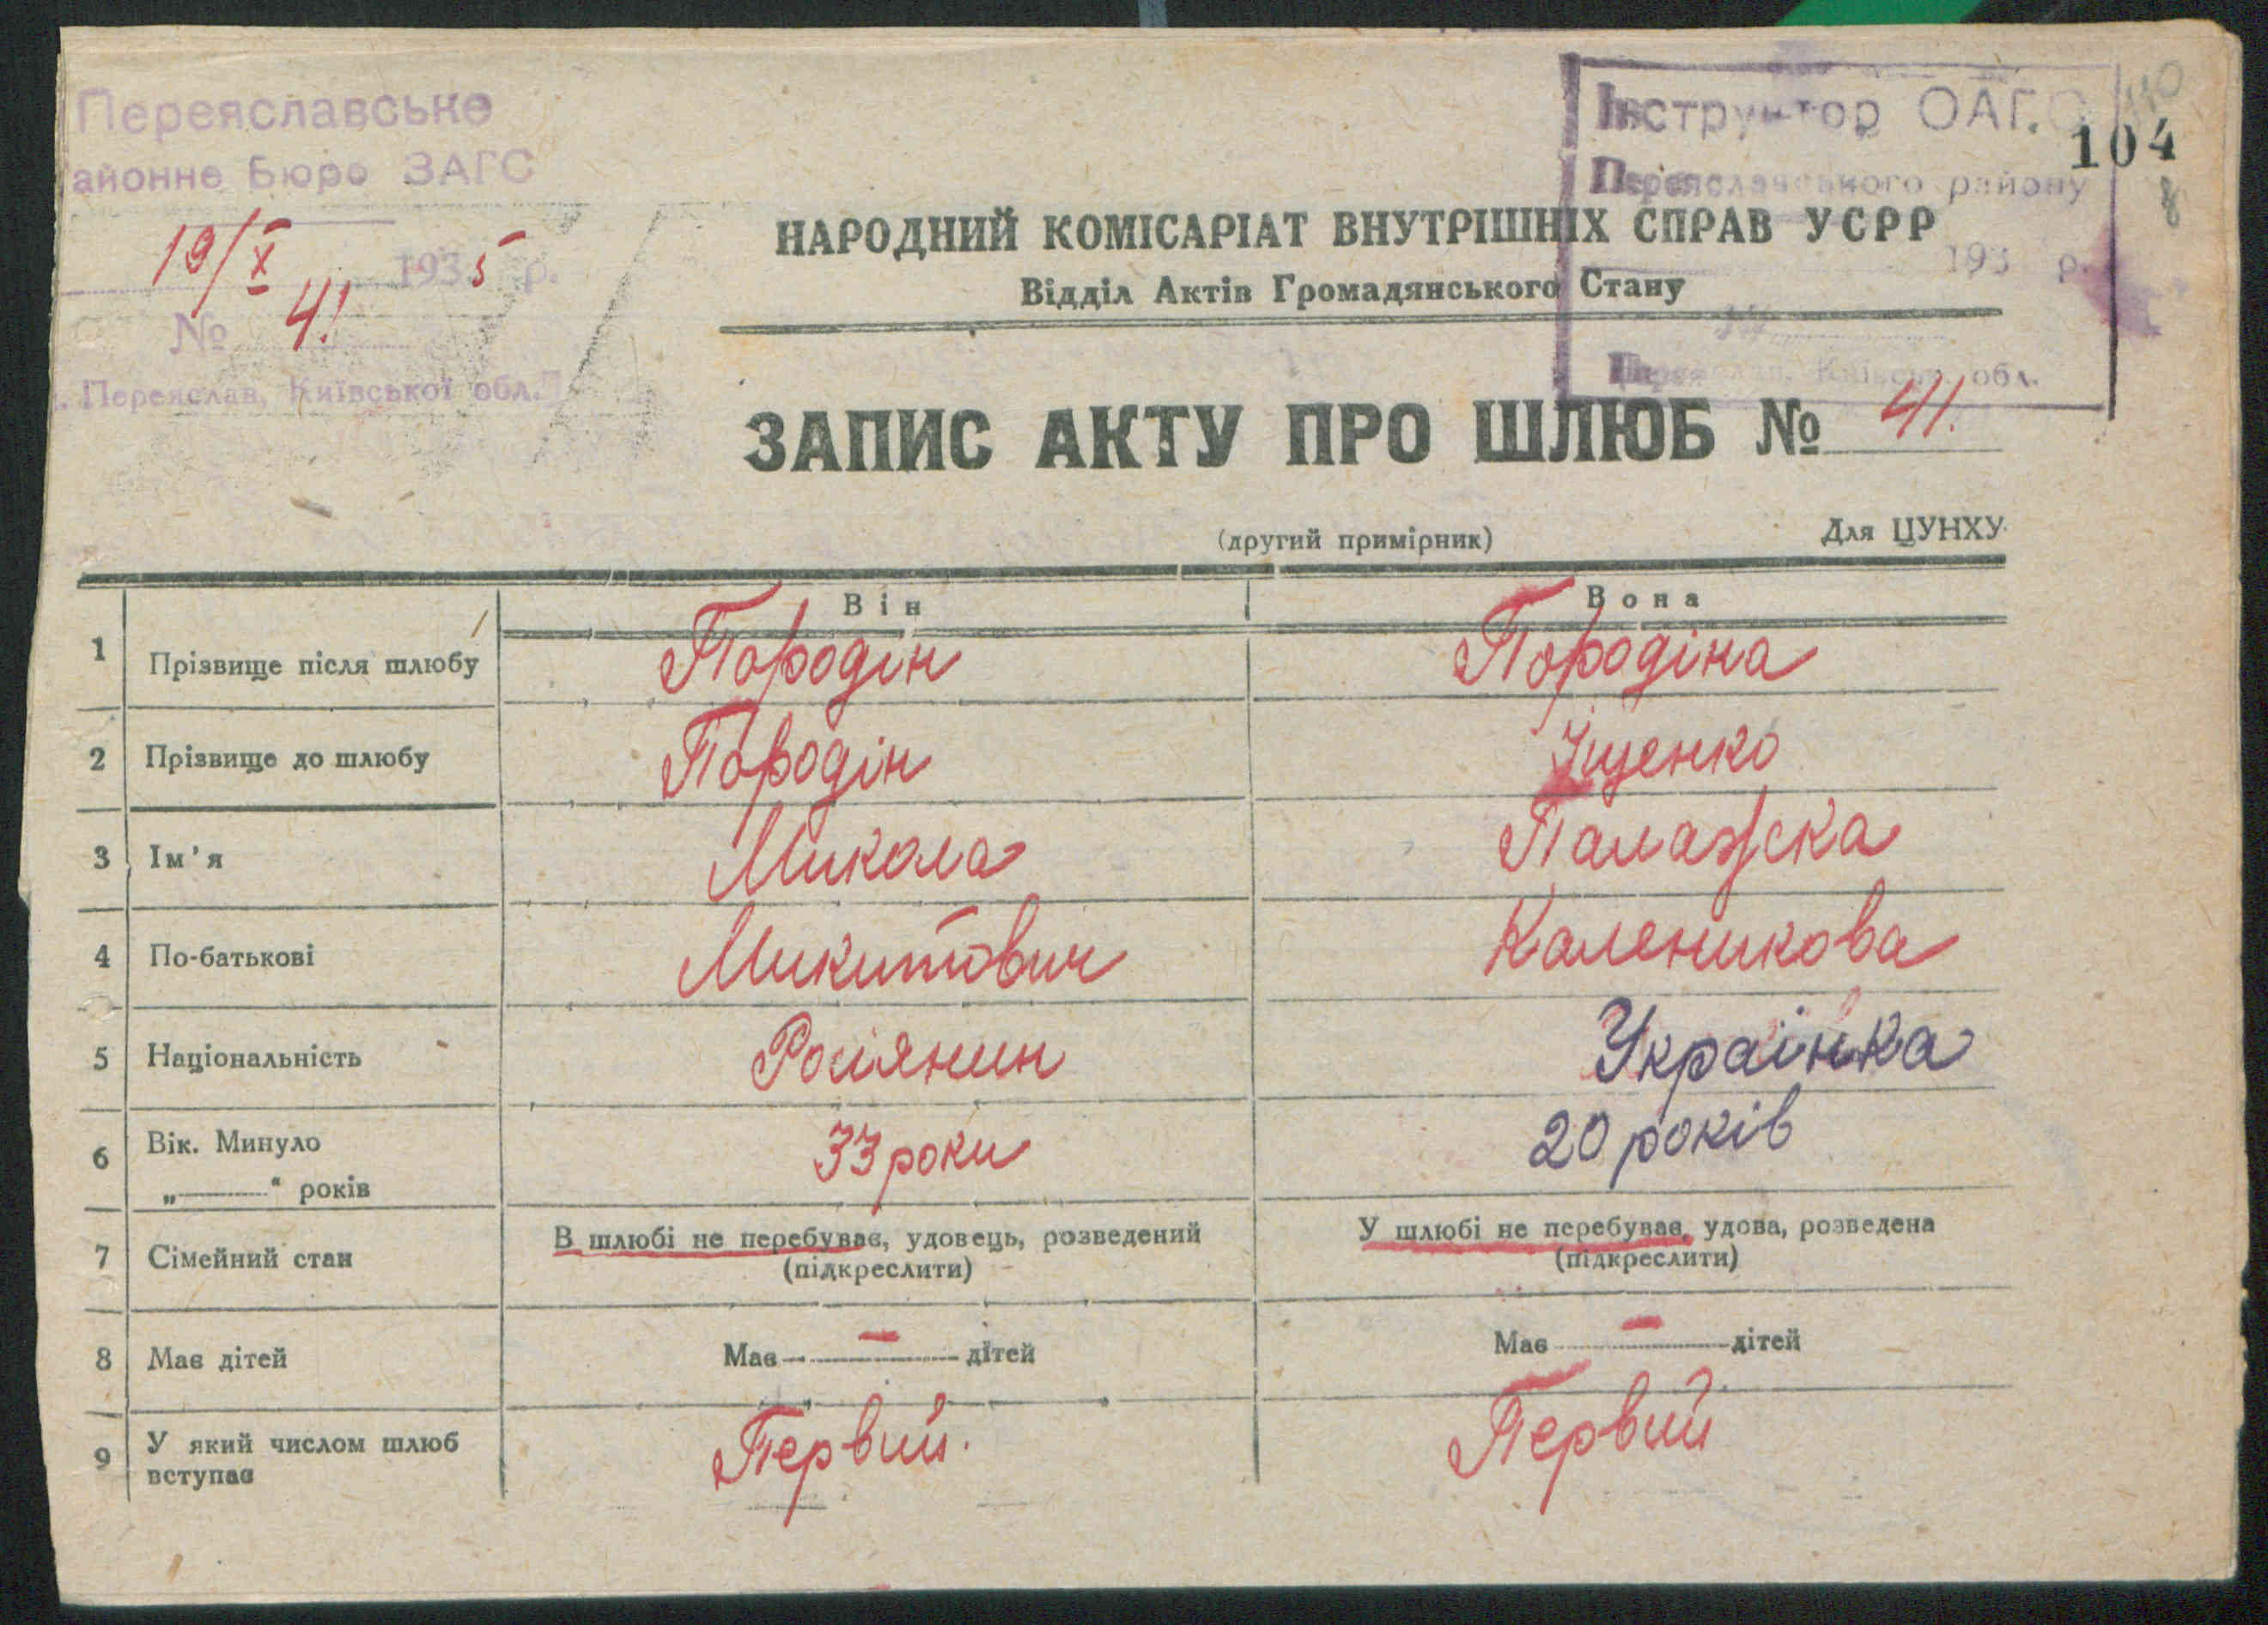 Переяславське
айонне Бюро ЗАГС
19/X 1935 р.
№ 41
. Переяслав, Київської обл.
Інструктор ОАГС
Переяславського району
193 р.
№
Переяслав, Київськ. обл.
110
104
8
НАРОДНИЙ КОМІСАРІАТ ВНУТРІШНІХ СПРАВ УСРР
Відділ Актів Громадянського Стану
ЗАПИС АКТУ ПРО ШЛЮБ № 41.
(другий примірник) Для ЦУНХУ
Він Вона
1 Прізвище після шлюбу Породін Породіна
2 Прізвище до шлюбу Породін Іщенко
3 Ім'я Микола Палажка
4 По-батькові Микитович Каленикова
5 Національність Росіянин Українка
6 Вік. Минуло 33 роки 20 років
„ “ років
7 Сімейний стан В шлюбі не перебував, удовець, розведений У шлюбі не перебував, удова, розведена
(підкреслити) (підкреслити)
8 Має дітей Має — дітей Має — дітей
9 У який числом шлюб Первий. Первий
вступає